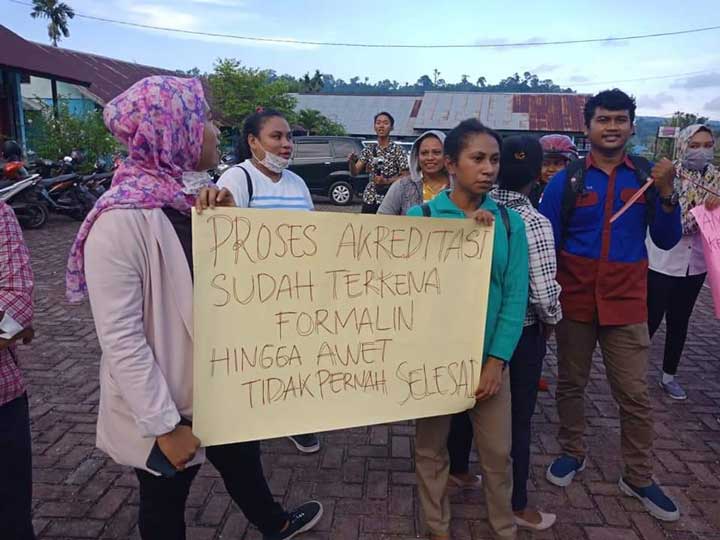 PROSES AKREDITASI
SUDAH TERKENA
FORMALIN
HINGGA AWET
TIDAK PERNAH SELESAI